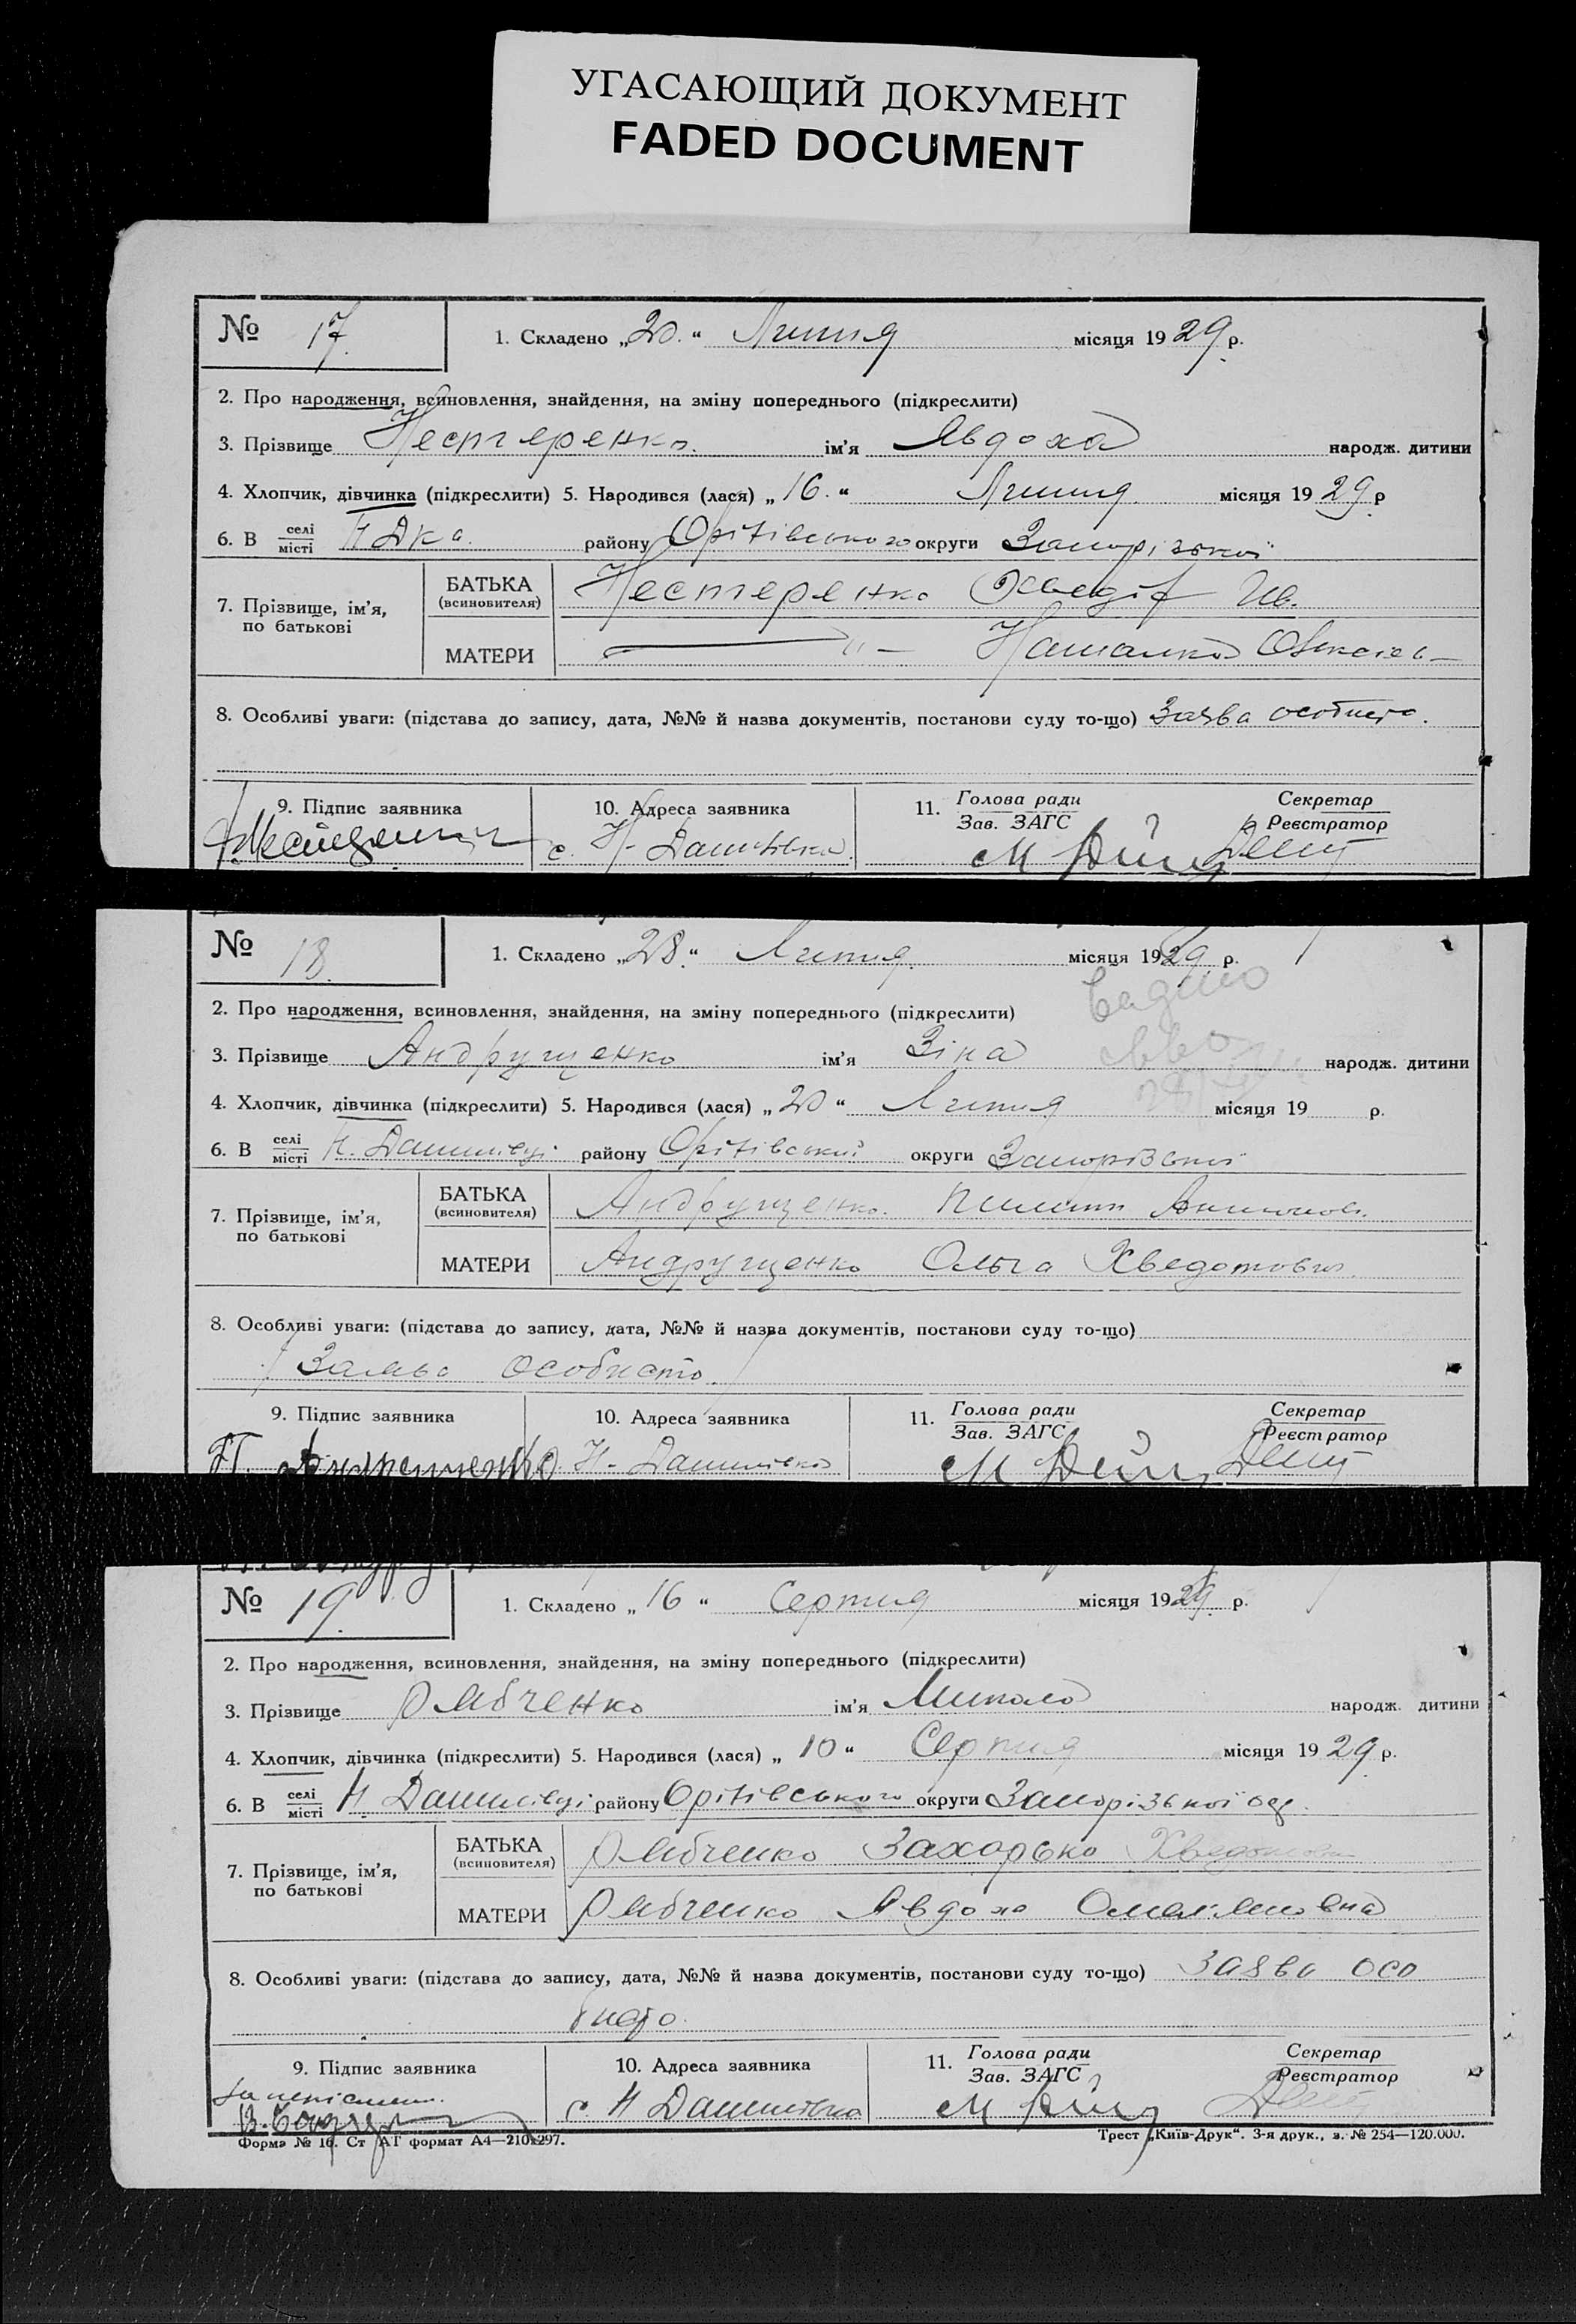 УГАСАЮЩИЙ ДОКУМЕНТ
FADED DOCUMENT
№ 17. 1. Складено „20.“ Липня місяця 1929 р.
2. Про народження, всиновлення, знайдення, на зміну попереднього (підкреслити)
3. Прізвище Нестеренко. ім'я Явдоха народж. дитини
4. Хлопчик, дівчинка (підкреслити) 5. Народився (лася) „16.“ Липня місяця 1929 р
6. В селі місті району Оріхівського округи Запорізької
7. Прізвище, ім'я, по батькові
БАТЬКА (всиновителя) Нестеренко Ів.
МАТЕРИ — „ — Наталка
8. Особливі уваги: (підстава до запису, дата, №№ й назва документів, постанови суду то-що) Заява особисто.
9. Підпис заявника 10. Адреса заявника 11. Голова ради Зав. ЗАГС Секретар Реєстратор
с. Н-Данилівка
№ 18. 1. Складено „28.“ Липня місяця 1929 р.
2. Про народження, всиновлення, знайдення, на зміну попереднього (підкреслити)
3. Прізвище Андрущенко ім'я Зіна народж. дитини
4. Хлопчик, дівчинка (підкреслити) 5. Народився (лася) „20“ Липня місяця 19 р.
6. В селі місті Н. Данилівці району Оріхівської округи Запорізької
7. Прізвище, ім'я, по батькові
БАТЬКА (всиновителя) Андрущенко. Пилип Антонов.
МАТЕРИ Андрущенко Ольга Хведотовна
8. Особливі уваги: (підстава до запису, дата, №№ й назва документів, постанови суду то-що)
Заява особисто.
9. Підпис заявника 10. Адреса заявника 11. Голова ради Зав. ЗАГС Секретар Реєстратор
П. Андрущенко Н-Данилівка
№ 19. 1. Складено „16“ Серпня місяця 1929 р.
2. Про народження, всиновлення, знайдення, на зміну попереднього (підкреслити)
3. Прізвище Рябченко ім'я Микола народж. дитини
4. Хлопчик, дівчинка (підкреслити) 5. Народився (лася) „10“ Серпня місяця 1929 р.
6. В селі місті Н. Данилівці району Оріхівського округи Запорізької
7. Прізвище, ім'я, по батькові
БАТЬКА (всиновителя) Рябченко Захарько
МАТЕРИ Рябченко Явдоха Омеляновна
8. Особливі уваги: (підстава до запису, дата, №№ й назва документів, постанови суду то-що) Заява осо
бисто.
9. Підпис заявника 10. Адреса заявника 11. Голова ради Зав. ЗАГС Секретар Реєстратор
с. Н Данилівка
Форма № 16. Ст АТ формат А4—210×297. Трест „Київ-Друк“. 3-я друк., з. № 254—120.000.